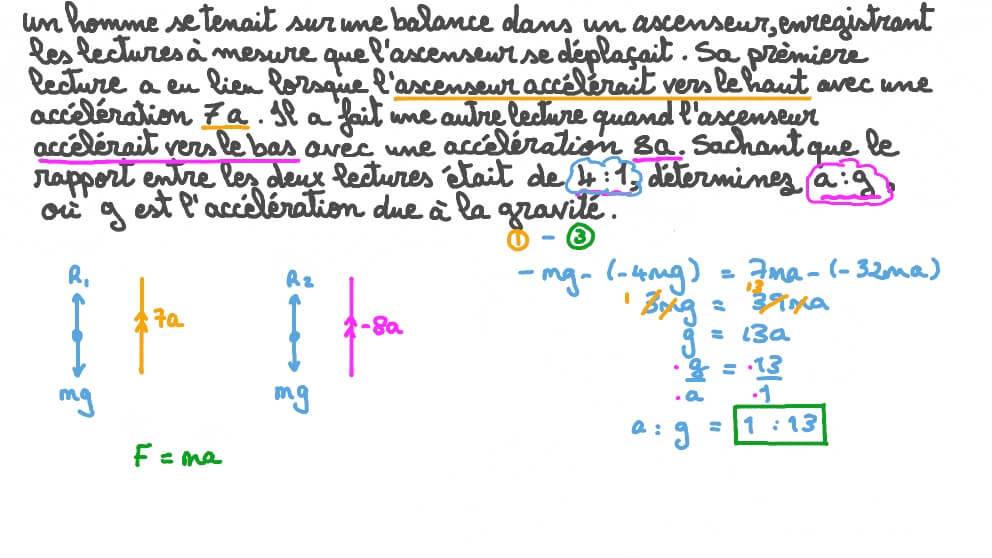 un homme se tenait sur une balance dans un ascenseur, enregistrant
les lectures à mesure que l'ascenseur se déplaçait. Sa prèmiere
lecture a eu lieu lorsque l'ascenseur accélérait vers le haut avec une
accélération 7a. Il a fait une autre lecture quand l'ascenseur
accélérait vers le bas avec une accélération 8a. Sachant que le
rapport entre les deux lectures était de 4:1, déterminez a:g,
où g est l'accélération due à la gravité.
① - ③
-mg-(-4mg) = 7ma-(-32ma)
1 13
3mg = 39ma
g = 13a
g/a = 13/1
a : g = 1 : 13
R₁
7a
mg
R₂
-8a
mg
F = ma